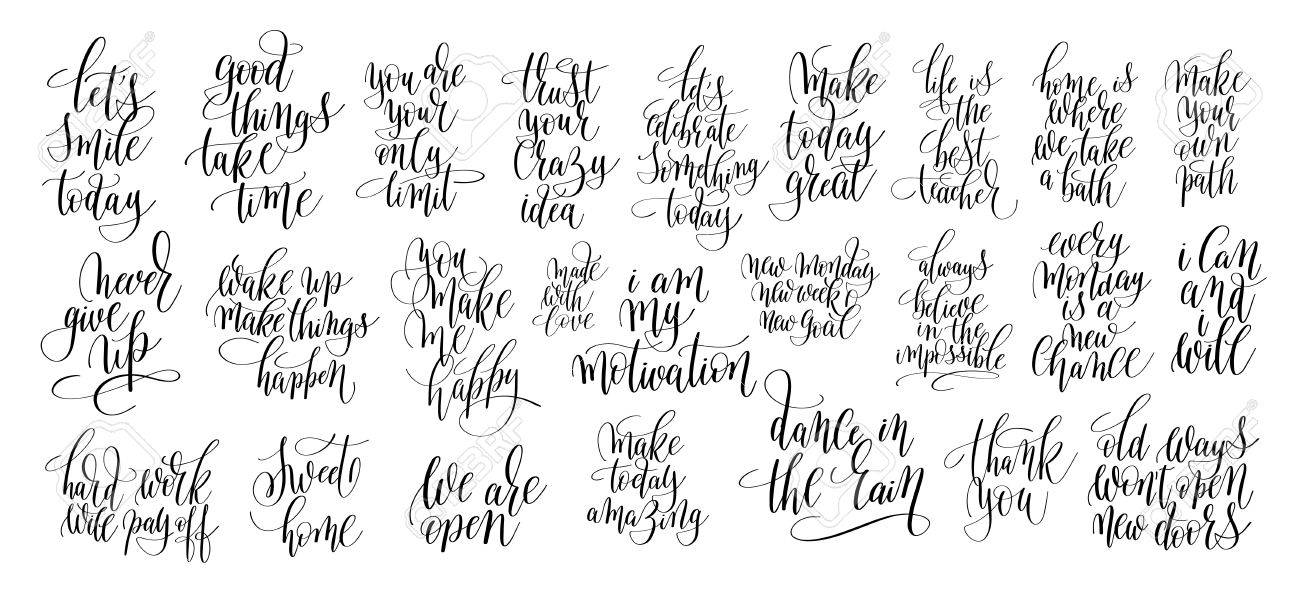 let's
smile
today
good
things
take
time
you are
your
only
limit
trust
your
crazy
idea
let's
celebrate
something
today
make
today
great
life is
the
best
teacher
home is
where
we take
a bath
make
your
own
path
never
give
up
wake up
make things
happen
you
make
me
happy
made
with
love
i am
my
motivation
new monday
new week
new goal
always
believe
in the
impossible
every
monday
is a
new
chance
i can
and
i
will
hard work
will pay off
sweet
home
we are
open
make
today
amazing
dance in
the rain
thank
you
old ways
won't open
new doors